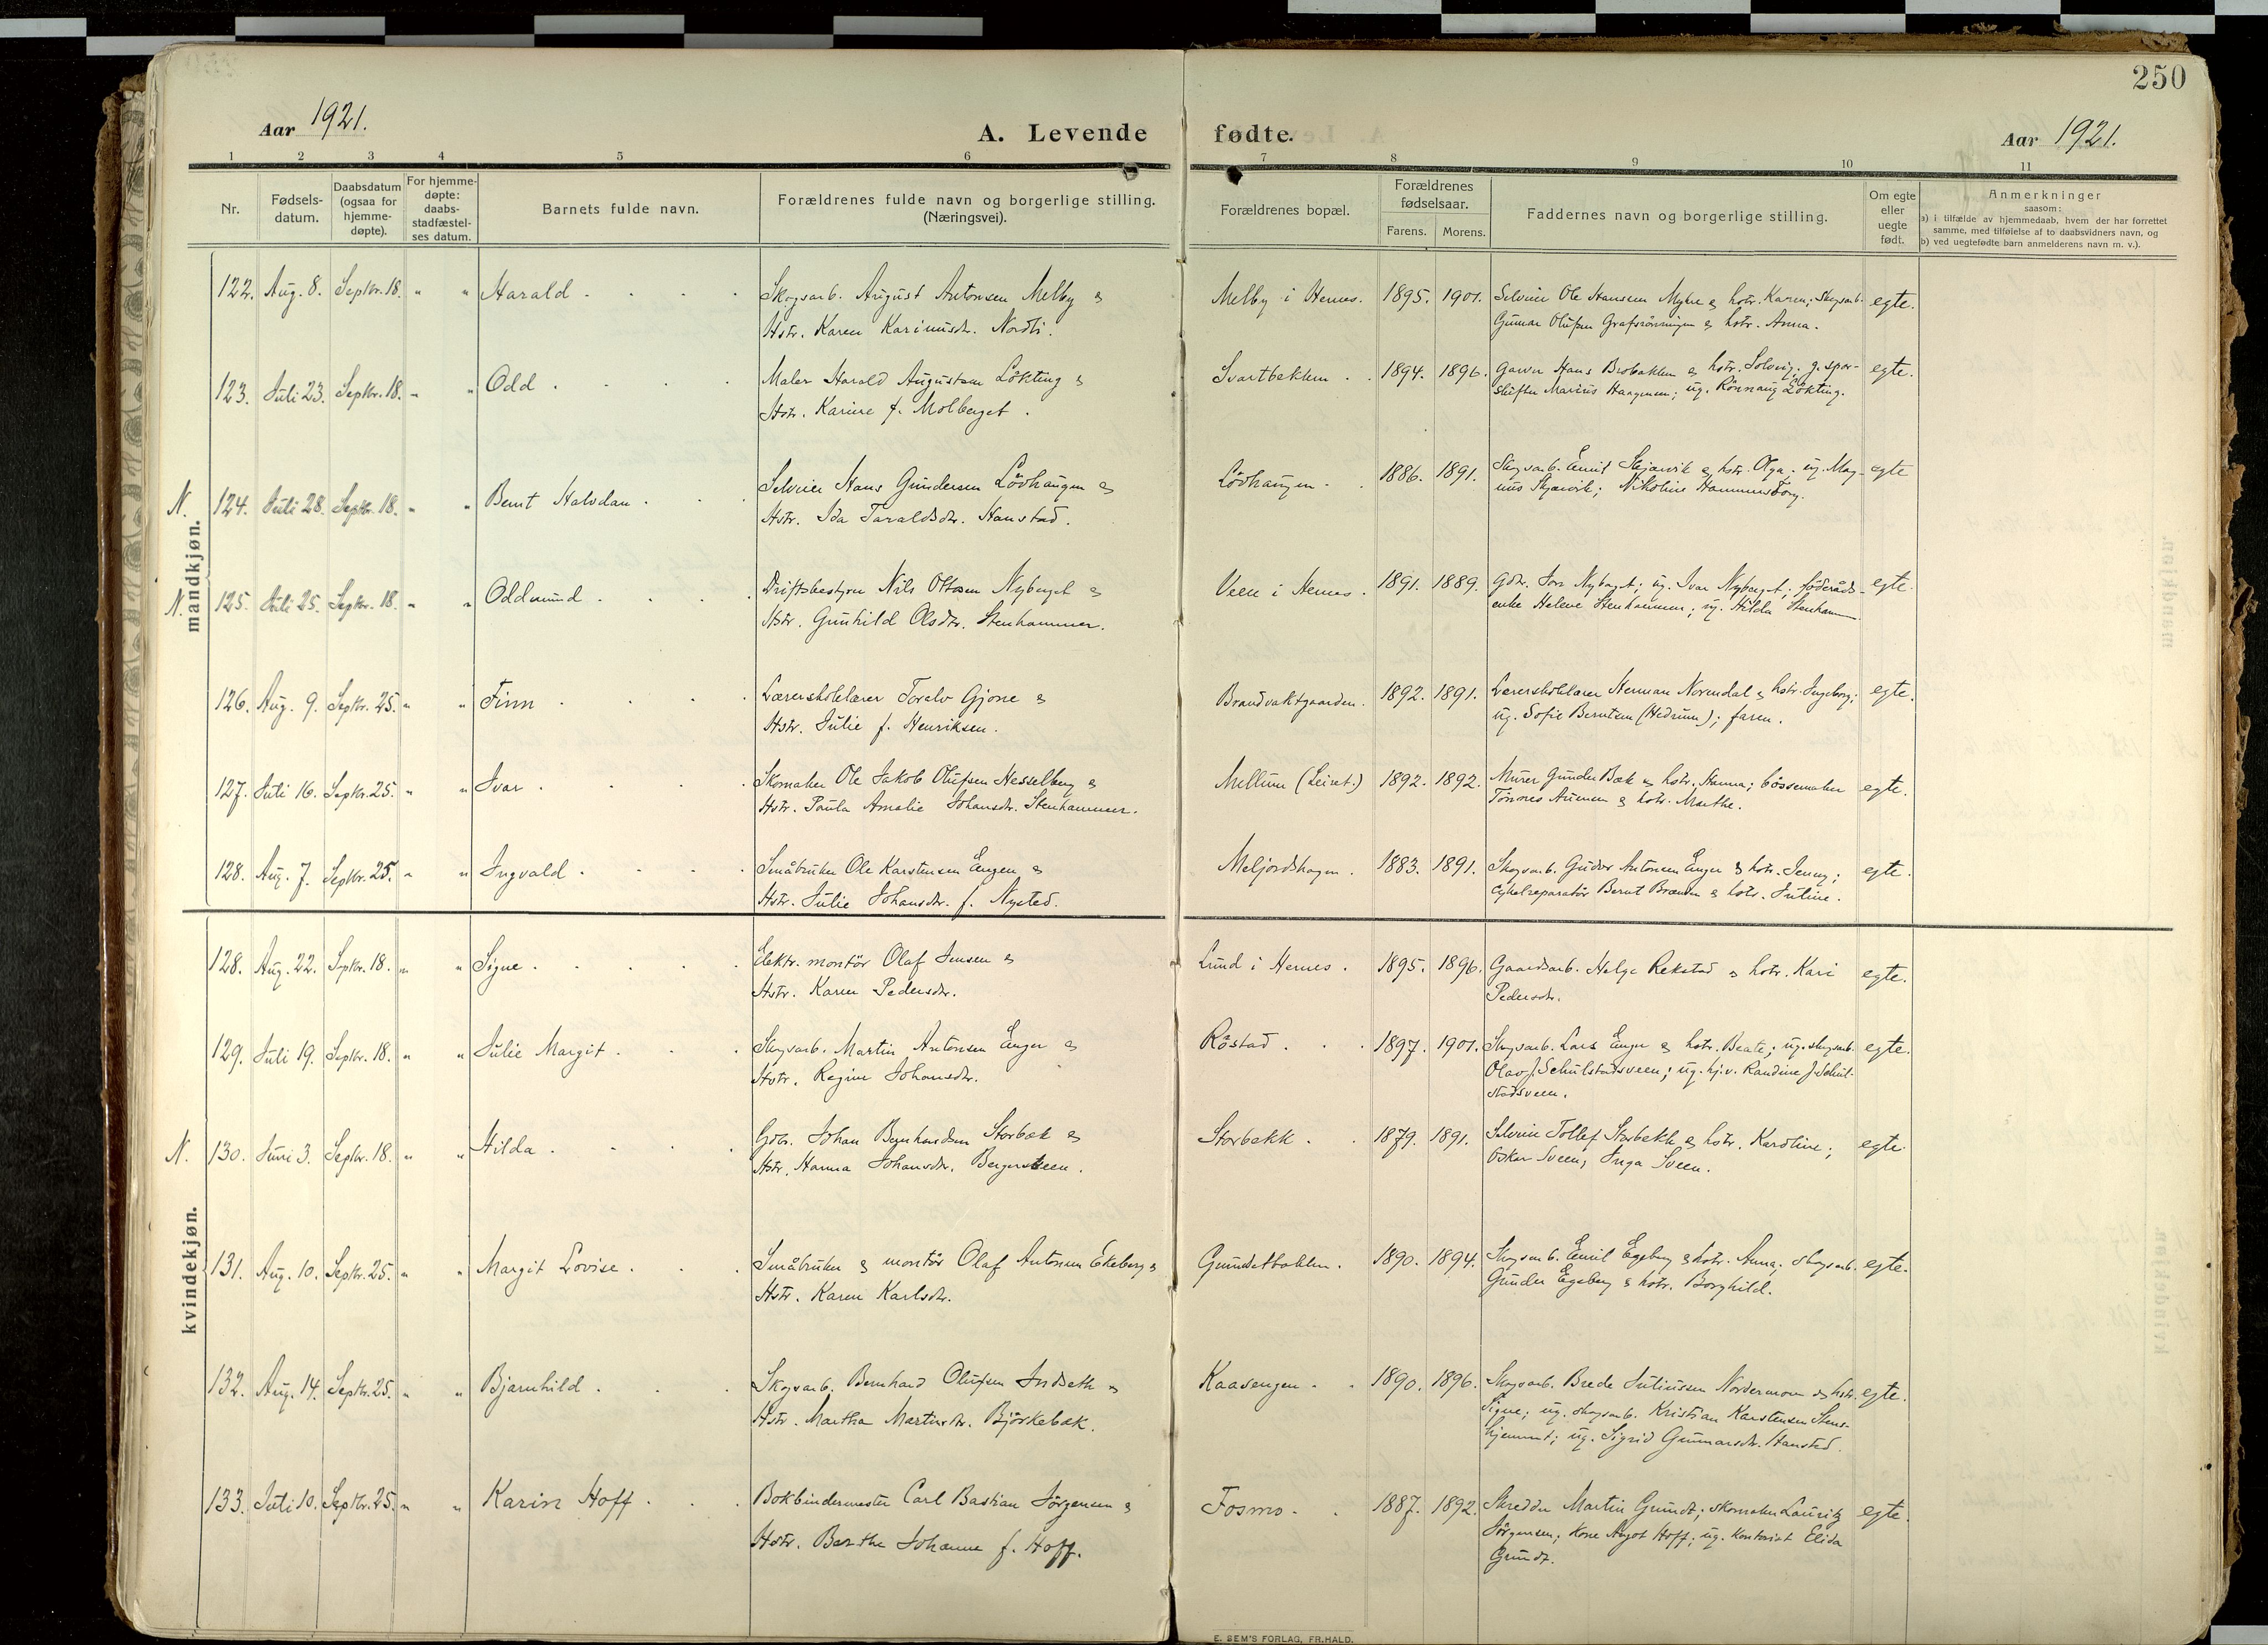 250
Aar 1921.
A. Levende fødte.
Aar 1921.
1 2 3 4 5 6 7 8 9 10 11
Nr.
Fødsels-
datum.
Daabsdatum
(ogsaa for
hjemme-
døpte).
For hjemme-
døpte:
daabs-
stadfæstel-
ses datum.
Barnets fulde navn.
Forældrenes fulde navn og borgerlige stilling.
(Næringsvei).
Forældrenes bopæl.
Forældrenes
fødselsaar.
Farens. Morens.
Faddernes navn og borgerlige stilling.
Om egte
eller
uegte
født.
Anmerkninger
saasom:
a) i tilfælde av hjemmedaab, hvem der har forrettet
samme, med tilføielse af to daabsvidners navn, og
b) ved uegtefødte barn anmelderens navn m. v.).
mandkjøn.
122. Aug. 8. Septbr. 18. " " Harald . Skogsarb. August Antonsen Melby & Melby i Hernes. 1895. 1901. Selveier Ole Hansen Myhre & hstr. Karen; skogsarb. egte.
Hstr. Karen Karinusdr. Nordli. Gunnar Olufsen Grafsrønningen & hstr. Anna.
123. Juli 23. Septbr. 18. " " Odd . Maler Harald Augustsen Løkting & Svartbekken . 1894. 1896. Garver Hans Brobakken & hstr. Solveig; g. spor-
egte.
Hstr. Karine f. Molberget . skifter Marius Haagensen; ug. Rønnaug Løkting.
N. 124. Juli 28. Septbr. 18. " " Bernt Halvdan . Selveier Hans Gundersen Lövhaugen & Lövhaugen . 1886. 1891. Skogsarb. Emil Skjærvik & hstr. Olga; ug. Mag-
egte
Hstr. Ida Taraldsdr. Hanstad. nus Skjærvik; Nikoline Hammersborg.
N. 125. Juli 25. Septbr. 18. " " Oddmund . Driftsbestyrer Nils Ottosen Nyberget & Veen i Hernes . 1891. 1889. Gdbr. Nyberget; ug. Ivar Nyberget; föderåds-
egte.
Hstr. Gunhild Olsdtr. Stenhammer. enke Helene Stenhammer; ug. Hilda Stenham
126. Aug. 9. Septbr. 25. " " Finn . Lærerskolelærer Toralv Gjone & Brandvaktgaarden . 1892. 1891. Lærerskolelærer Herman Norendal & hstr. Ingeborg; egte.
Hstr. Julie f. Henriksen. ug. Sofie Berntsen (Hedrum); faren.
127. Juli 16. Septbr. 25. " " Ivar . Skomaker Ole Jakob Olufsen Hesselberg & Mellum (Leiret.) 1892. 1892. Murer Gunder Bæk & hstr. Hanna; bössemaker egte.
Hstr. Paula Amalie Johansdr. Stenhammer. Tönnes Aumen & hstr. Marthe.
128. Aug. 7. Septbr. 25. " " Ingvald . Småbruker Ole Karstensen Engen & Meljordshagen . 1883. 1891. Skogsarb. Gudor Antonsen Enger & hstr. Jenny; egte.
Hstr. Julie Johansdr. f. Nysted. Cykelreparatör Bernt Brænden & hstr. Juline.
kvindekjøn.
128. Aug. 22. Septbr. 18. " " Signe . Elektr. montör Olaf Jensen & Lund i Hernes . 1895. 1896. Gaardsarb. Helge Rekstad & hstr. Kari egte.
Hstr. Karen Pedersdr. Pedersdr.
129. Juli 19. Septbr. 18. " " Julie Margit . Skogsarb. Martin Antonsen Enger & Röstad . 1897. 1901. Skogsarb. Lars Enger & hstr. Beate; ug. skogsarb. egte.
Hstr. Regine Johansdr. Olav J. Schulstadsveen; ug. hj.v. Randine J. Schul-
stadsveen.
N. 130. Juni 3. Septbr. 18. " " Hilda . Gdbr. Johan Bernhardsen Storbæk & Storbekk . 1879. 1891. Selveier Tollef Storbekk & hstr. Karoline; egte.
Hstr. Hanna Johansdr. Bergersveen. Oskar Sveen; Inga Sveen.
131. Aug. 10. Septbr. 25. " " Margit Lovise . Småbruker & montör Olaf Antonsen Ekeberg & Grundsetbakken . 1890. 1894. Skogsarb. Emil Egeberg & hstr. Anna; skogsarb. egte.
Hstr. Karen Karlsdr. Gunder Egeberg & hstr. Borghild.
132. Aug. 14. Septbr. 25. " " Bjarnhild . Skogsarb. Bernhard Olufsen Indseth & Kaasengen . 1890. 1896. Skogsarb. Brede Juliussen Nordermoen & hstr. egte.
Hstr. Martha Martinsdr. Björkebæk. Signe; ug. skogsarb. Kristian Karstensen Stens-
hjemmet; ug. Sigrid Gunnarsdr. Hanstad.
133. Juli 10. Septbr. 25. " " Karin Hoff . Bokbindermester Carl Bastian Jörgensen & Fosmo . 1887. 1892. Skredder Martin Grundt; skomaker Lauritz egte.
Hstr. Berthe Johanne f. Hoff. Jörgensen; kone Aagot Hoff; ug. kontorist Elida
Grundt.
E. SEM'S FORLAG, FR.HALD.